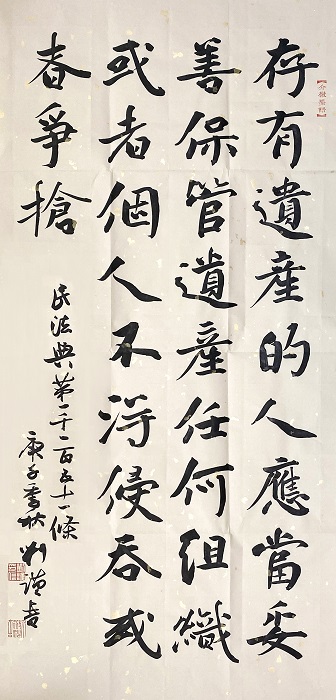 存有遺產的人應當妥
善保管遺產任何組織
或者個人不得侵吞或
者爭搶
民法典第一千一百五十一條
庚子季秋